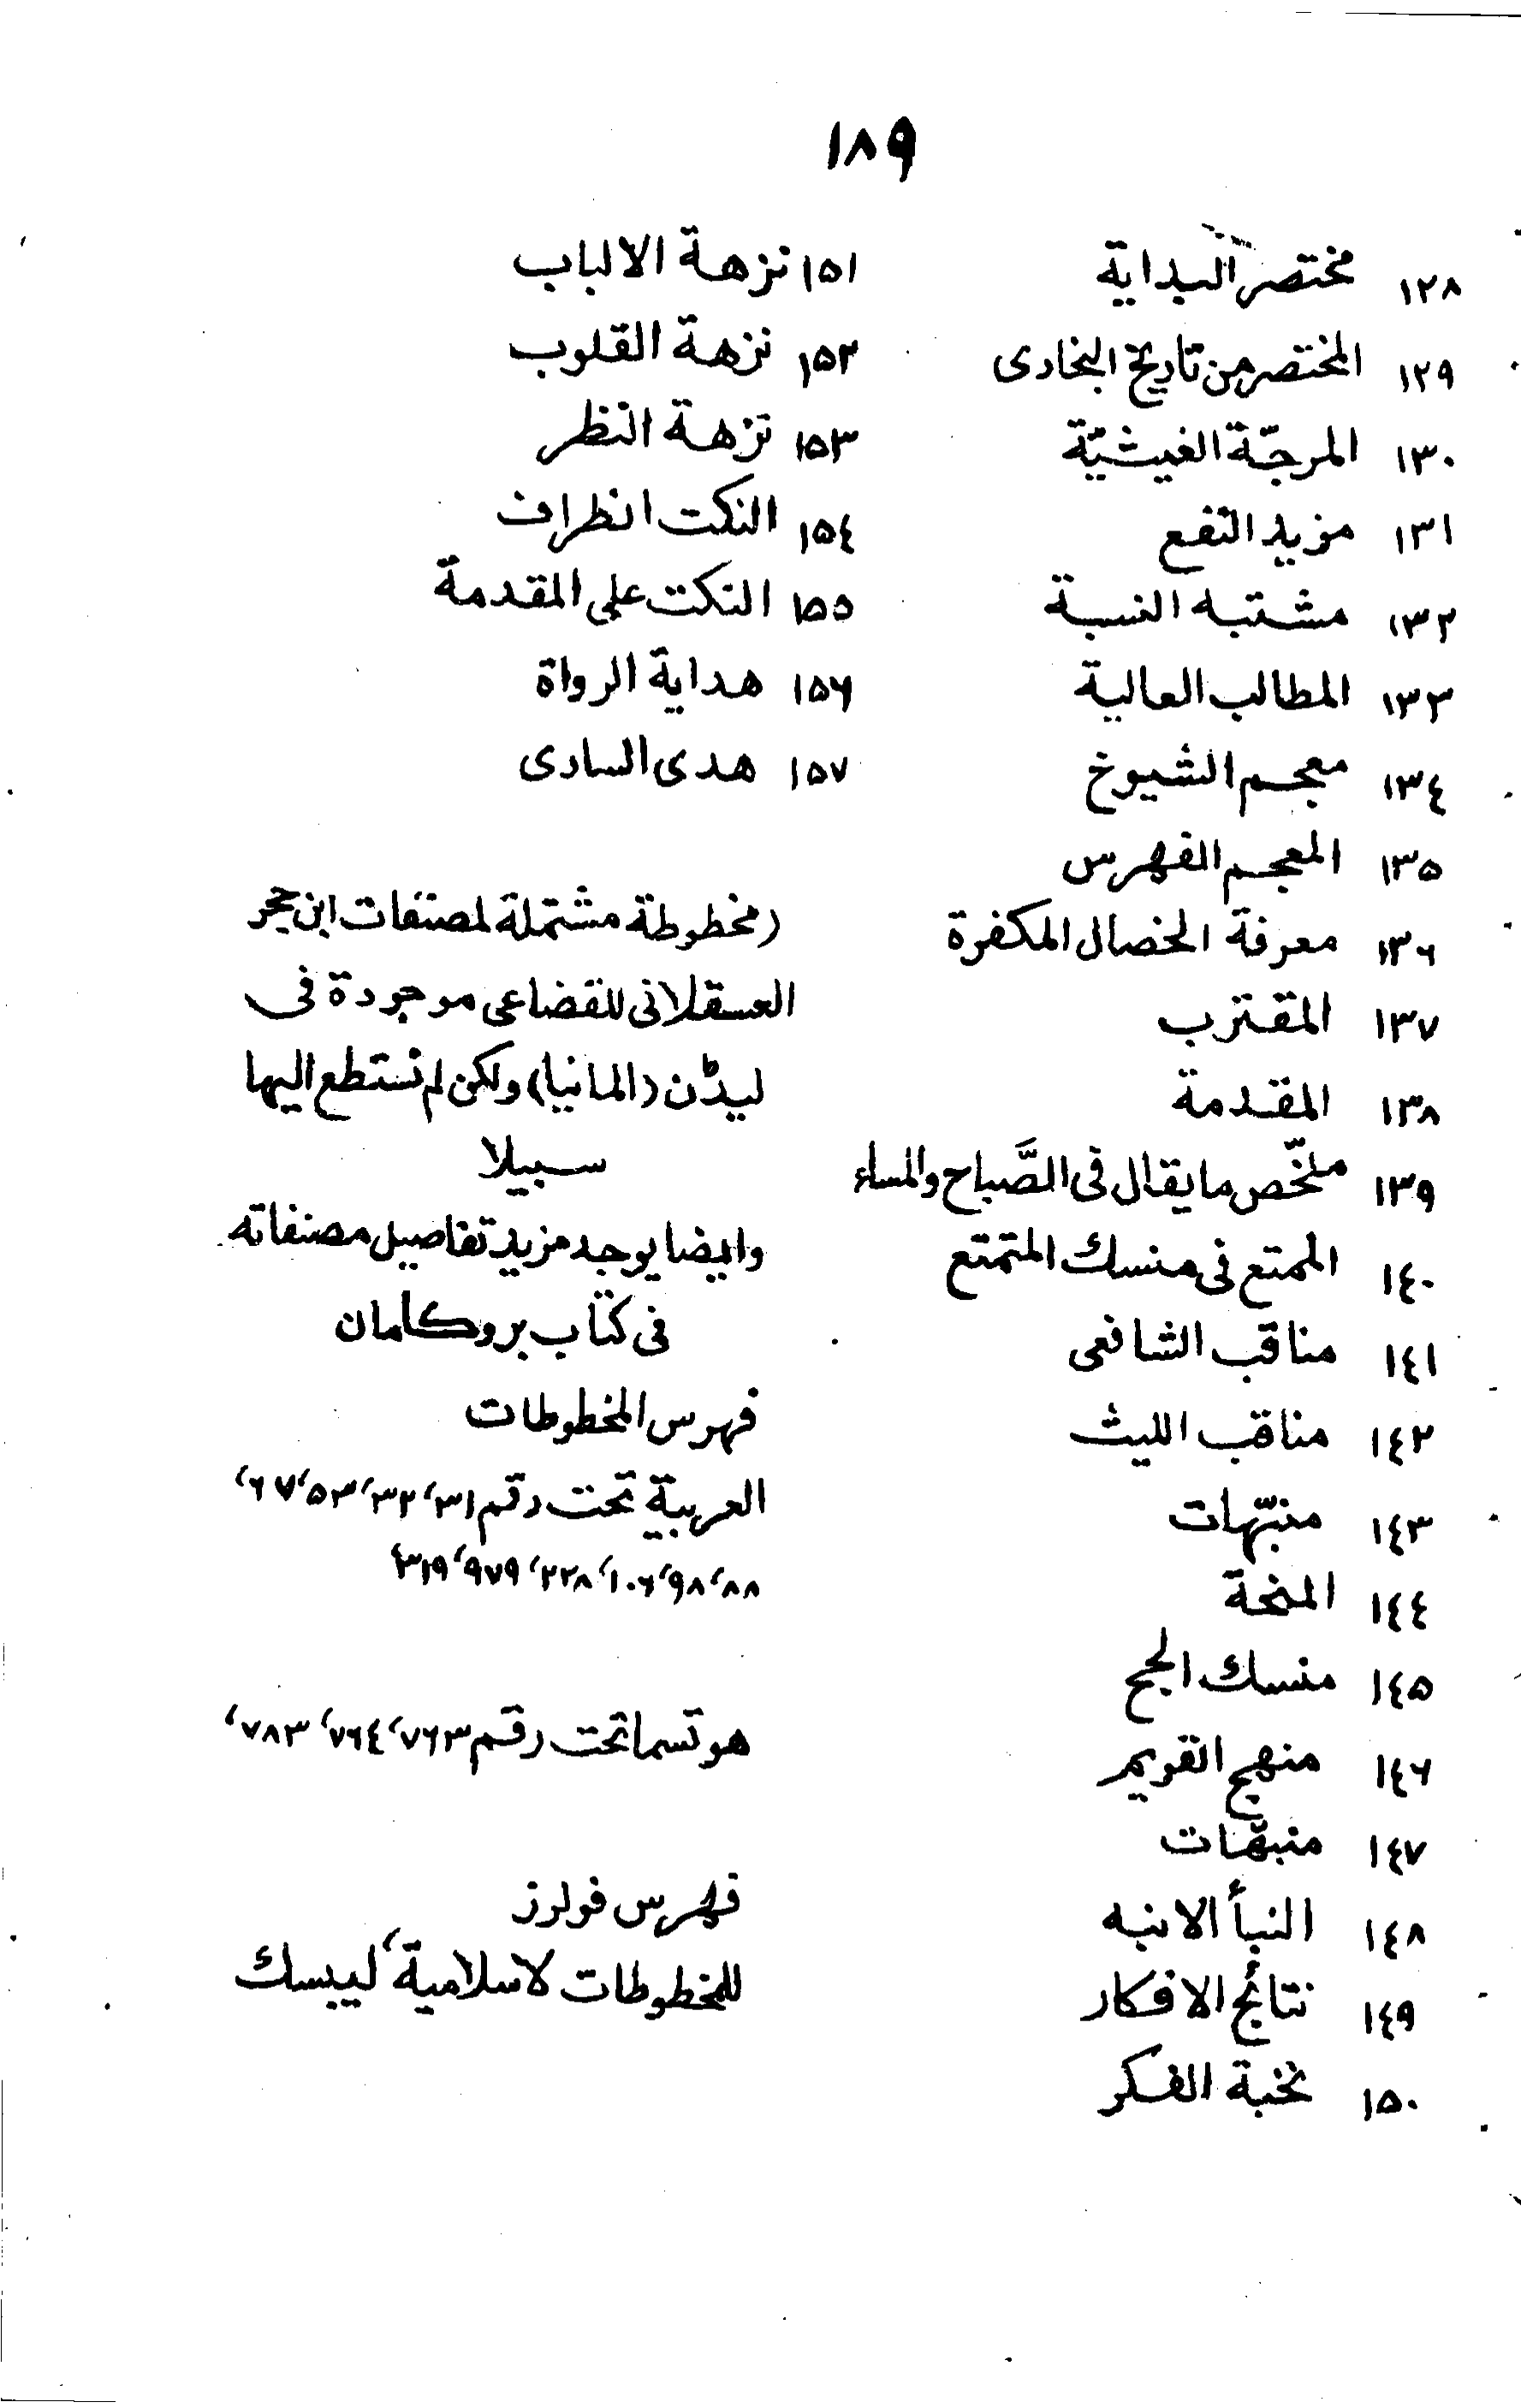 ١٨٩
١٢٨ مختصر البداية
١٢٩ المختصر من تاريخ البخارى
١٣٠ المرجّة الغيشيّة
١٣١ مزيد النفع
١٣٢ مشتبه النسبة
١٣٣ المطالب العالية
١٣٤ معجم الشيوخ
١٣٥ المعجم الفهرس
١٣٦ معرفة الخصال المكفرة
١٣٧ المقترب
١٣٨ المقدمة
١٣٩ ملخّص ما يقال فى الصَّباح والمساء
١٤٠ الممتع فى منسك المتمتع
١٤١ مناقب الشافعى
١٤٢ مناقب الليث
١٤٣ منبّهات
١٤٤ المنحة
١٤٥ منسك الحج
١٤٦ منهج القويم
١٤٧ منبهّات
١٤٨ النبأ الانبه
١٤٩ نتائج الافكار
١٥٠ نخبة الفكر
١٥١ نزهة الالباب
١٥٢ نزهة القلوب
١٥٣ نزهة النظر
١٥٤ النكت الظراف
١٥٥ النكت على المقدمة
١٥٦ هداية الرواة
١٥٧ هدى السارى
(مخطوطة مشتملة لمصنفات ابن حجر
العسقلانى للقضاعى موجودة فى
ليڈن (المانيا) ولكن لم نستطع اليها
سبيلا
وايضا يوجد مزيد تفاصيل مصنفاته
فى كتاب بروكلمان
فهرس المخطوطات
العربية تحت رقم ٣١‘ ٣٢‘ ٥٣‘ ٦٧‘
٨٨‘ ٩٨‘ ١٠٦‘ ٢٢٨‘ ٩٧٩‘ ٣١٩‘
هوتسما تحت رقم ٧٦٣‘ ٧٦٤‘ ٧٨٣‘
فهرس فولرز
للمخطوطات لاسلامية‘ ليبسك